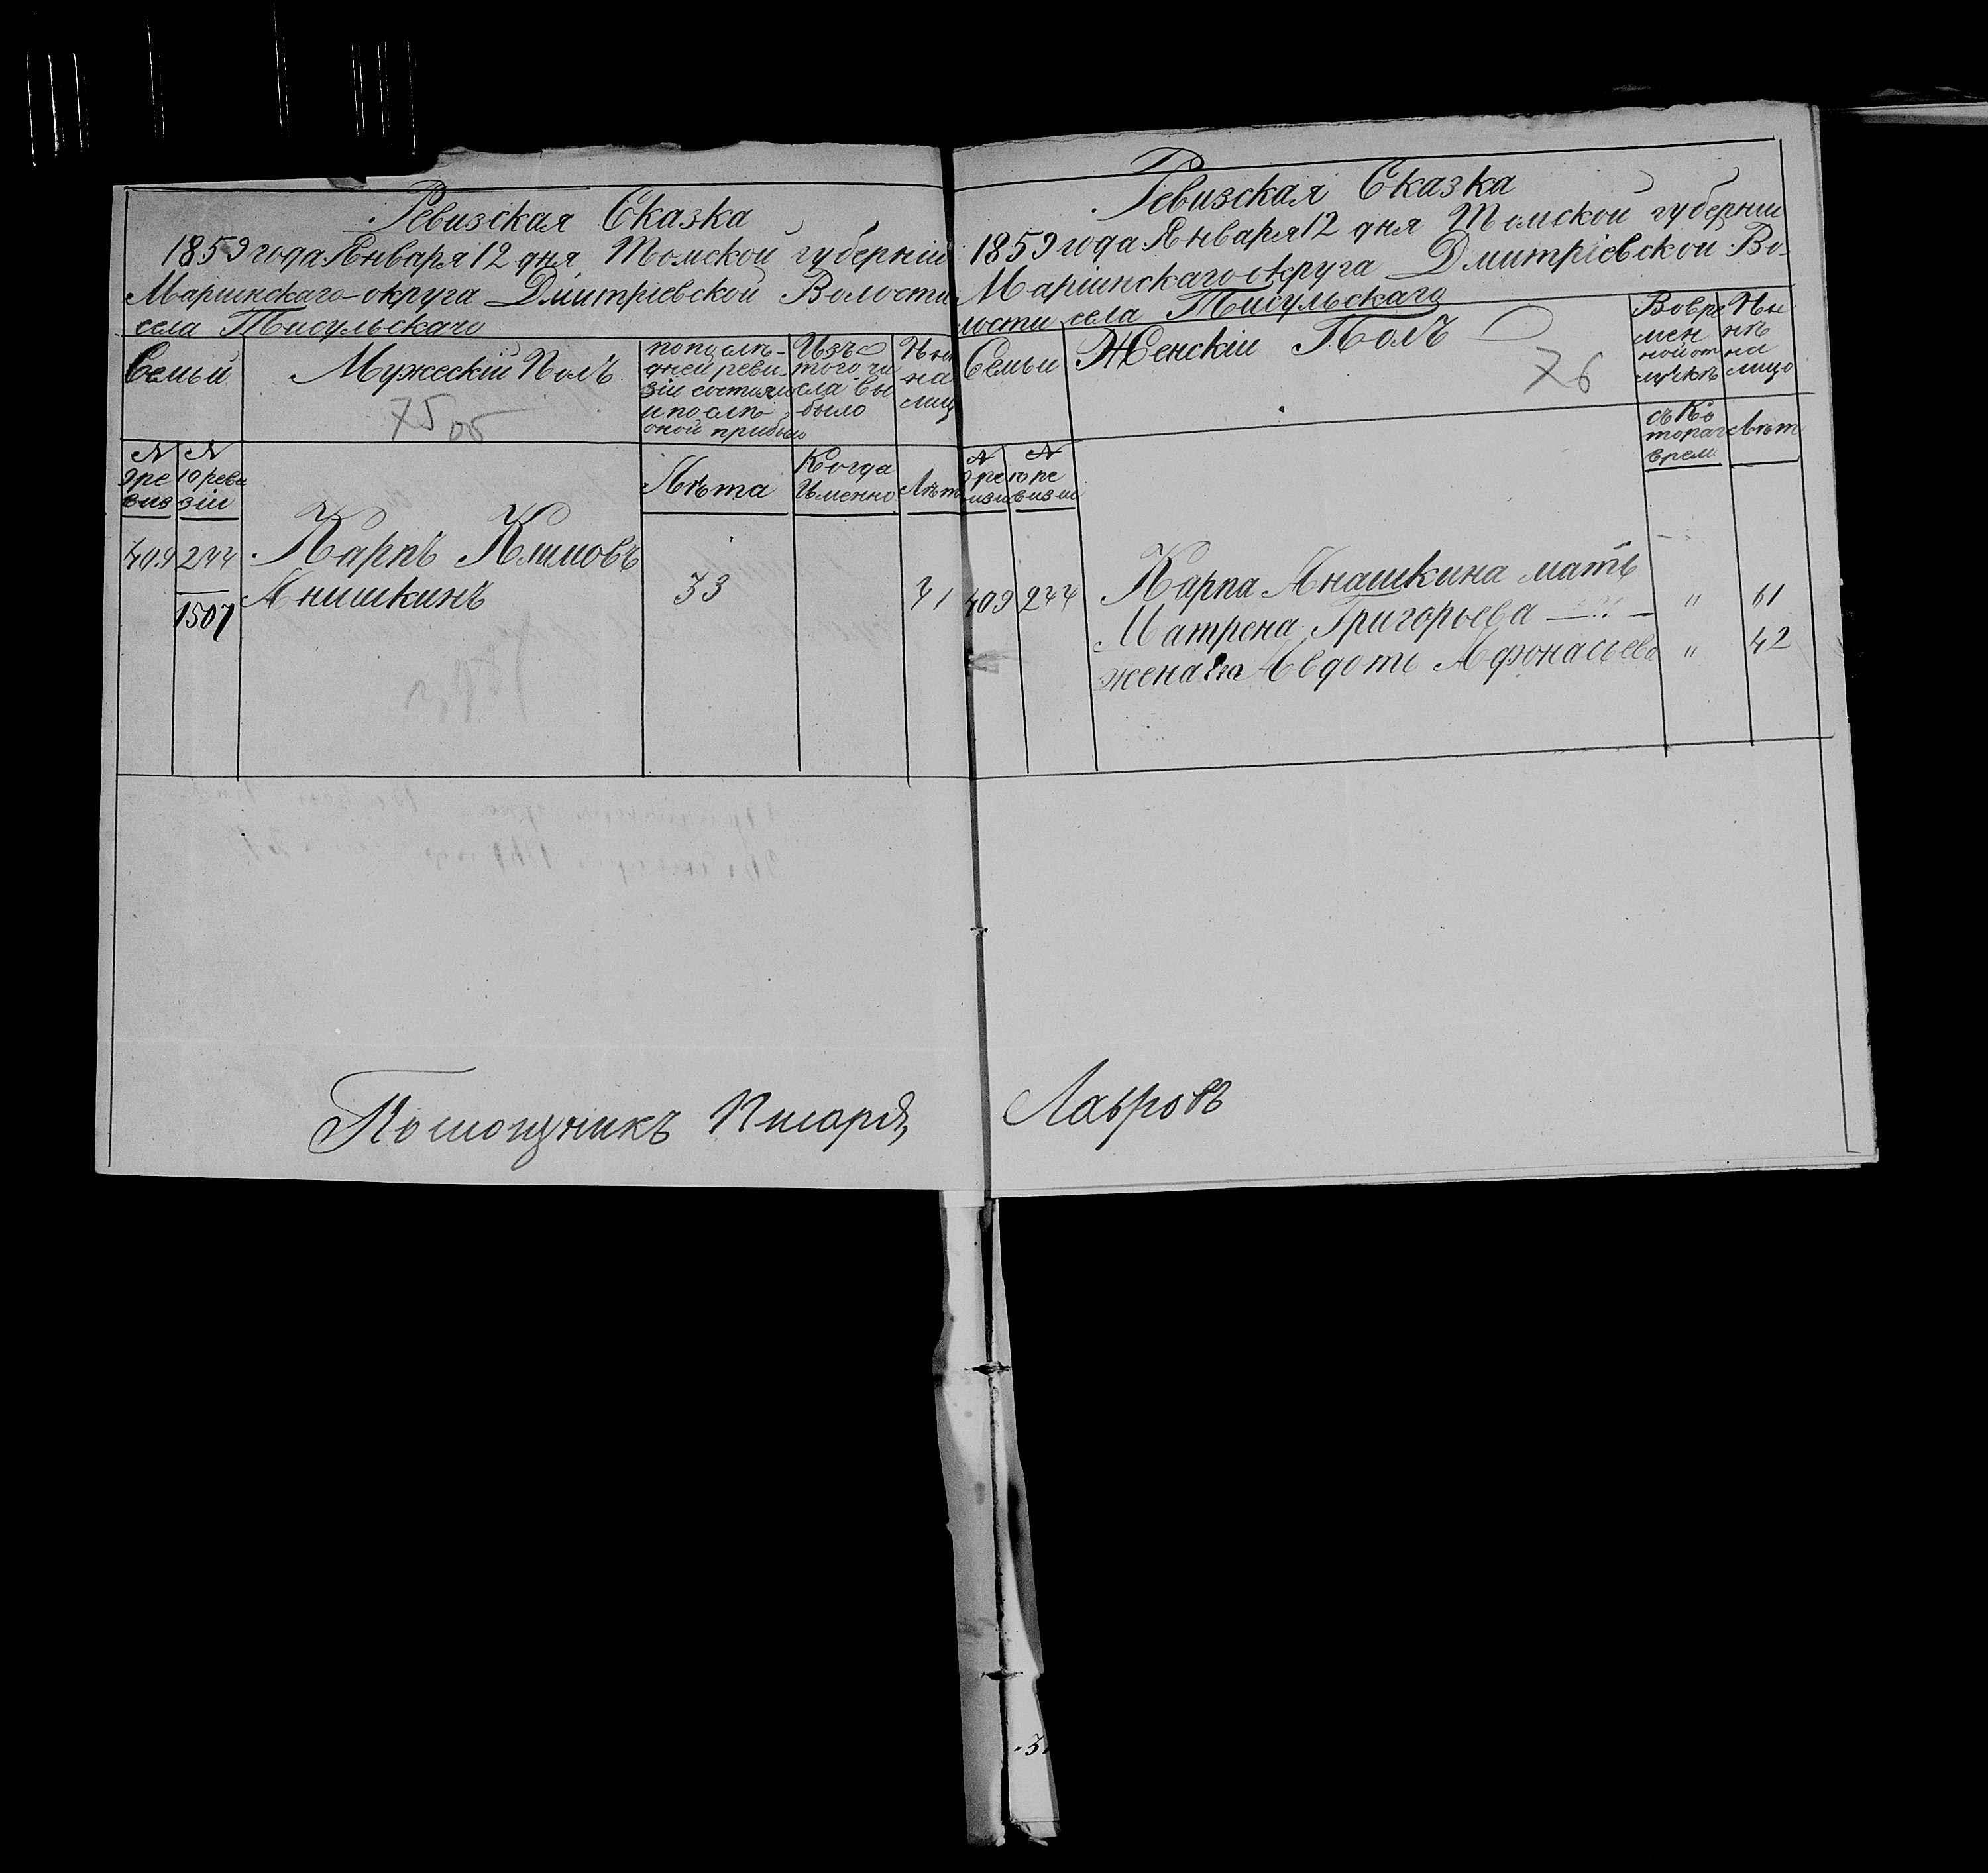 Ревизская Сказка
1859 года Января 12 дня Томской губерніи
Маріинскаго округа Дмитріевской Волости
села Тисульскаго
Семьи
Мужескій Полъ
75 об
по послѣ-
дней реви-
зіи состояло
и послѣ
оной прибыло
Изъ
того чи
сла вы
было
Ны
на
лиц
№
9 ре
виз
№
10 реви
зіи
Лѣта
Когда
Именно
Лѣт
409 244 Карпъ Климовъ
1507 Анишкинъ 33 41
Помощникъ Писаря
Ревизская Сказка
1859 года Января 12 дня Томской губерніи
Маріинскаго округа Дмитріевской Во-
лости села Тисульскаго
Семьи
Женскій Полъ
76
Во вре
мен
ной от
лучкѣ
Ны
нѣ
на
лицо
съ Ко
тораго
врем
Лѣт
№
9 ре
визіи
№
10 ре
визіи
409 244 Карпа Анашкина мать
Матрена Григорьева " 61
жена его Авдоть Афонасьева " 42
Лавровъ